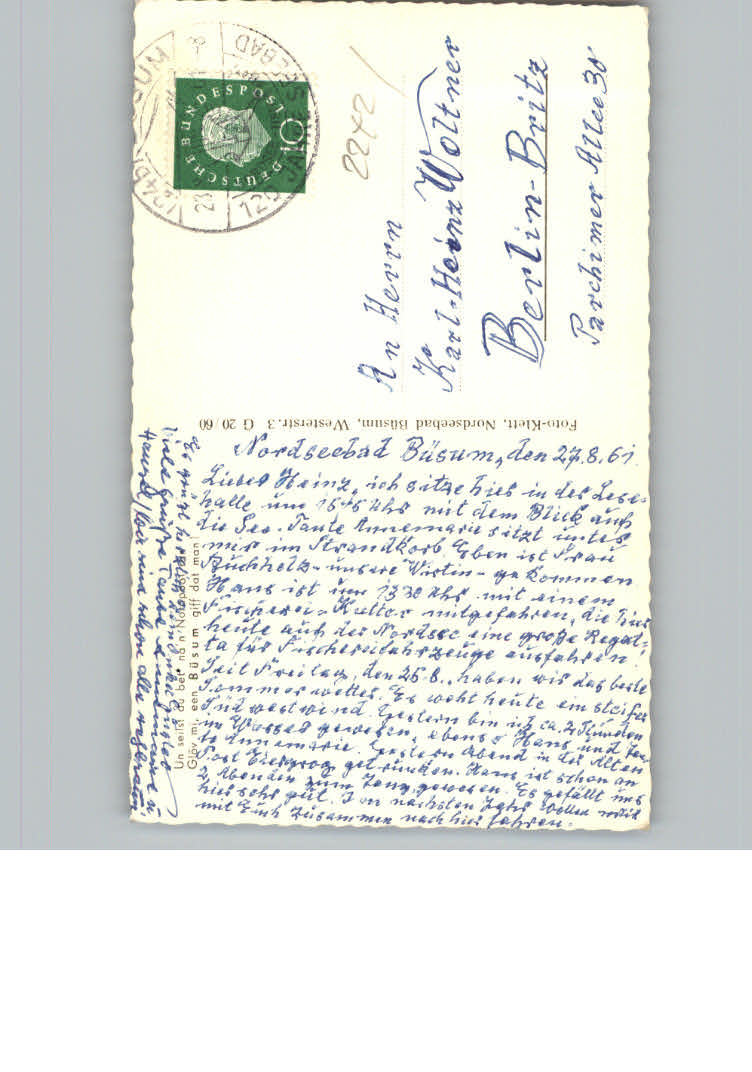 Nordseebad Büsum, den 27.8.61.
Lieber Heinz, ich sitze hier in der Lese-
halle um 1645 Uhr mit dem Blick auf
die See. Tante Annemarie sitzt unter
mir im Strandkorb. Eben ist Frau
Buchholz - unsere Wirtin - gekommen.
Hans ist um 1330 Uhr mit einem
Fischerei-Kutter mitgefahren, die hier
heute auf der Nordsee eine große Regat-
ta für Fischereifahrzeuge ausfahren.
Seit Freitag, den 25.8., haben wir das beste
Sommerwetter. Es weht heute ein steifer
Südwestwind. Gestern bin ich ca. 2 Stunden
im Wasser gewesen, ebenso Hans und Tan-
te Annemarie. Gestern Abend in der Alten
Post Eiergrog getrunken. Hans ist schon an
2 Abenden zum Tanz gewesen. Es gefällt uns
hier sehr gut. Im nächsten Jahr wollen wir
mit Euch zusammen nach hier fahren.
Es grüßt herzlichst
Viele Grüße Tante Annemarie u.
Hans
Un seilst du bet' na'n Noto
Glöv mi, een Büsum giff dat man
Foto-Klett, Nordseebad Büsum, Westerstr.3 G 20/60
An Herrn
Karl-Heinz Woltner
Berlin-Britz
Parchimer Allee 30
2242
DEUTSCHE BUNDESPOST
10
(24b) BÜSUM
125 JAHRE